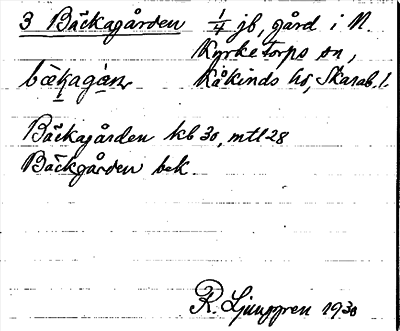 3 Bäckagården 1/4 jb, gård i N.
Kyrketorps sn,
Kåkinds hd, Skarab. l.
Bäckagården kb 30, mtl 28
Bäckgården bek.
R. Ljunggren 1930